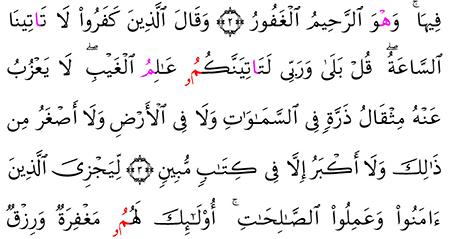 فِيهَا ۚ وَهْوَ اَ۬لرَّحِيمُ اُ۬لْغَفُورُ ۝٢ وَقَالَ اَ۬لذِينَ كَفَرُواْ لَا تَاتِينَا
اَ۬لسَّاعَةُ ۖ قُلْ بَلَىٰ وَرَبِّى لَتَاتِيَنَّكُمُۥ عَٰلِمُ اُ۬لْغَيْبِ ۖ لَا يَعْزُبُ
عَنْهُ مِثْقَالُ ذَرَّةٖ فِى اِ۬لسَّمَٰوَٰتِ وَلَا فِى اِ۬لْأَرْضِ وَلَا أَصْغَرُ مِن
ذَٰلِكَ وَلَا أَكْبَرُ إِلَّا فِى كِتَٰبٖ مُّبِينٖ ۝٣ لِّيَجْزِىَ اَ۬لذِينَ
ءَامَنُواْ وَعَمِلُواْ اُ۬لصَّٰلِحَٰتِ ۚ أُوْلَٰٓئِكَ لَهُمُۥ مَغْفِرَةٞ وَرِزْقٞ